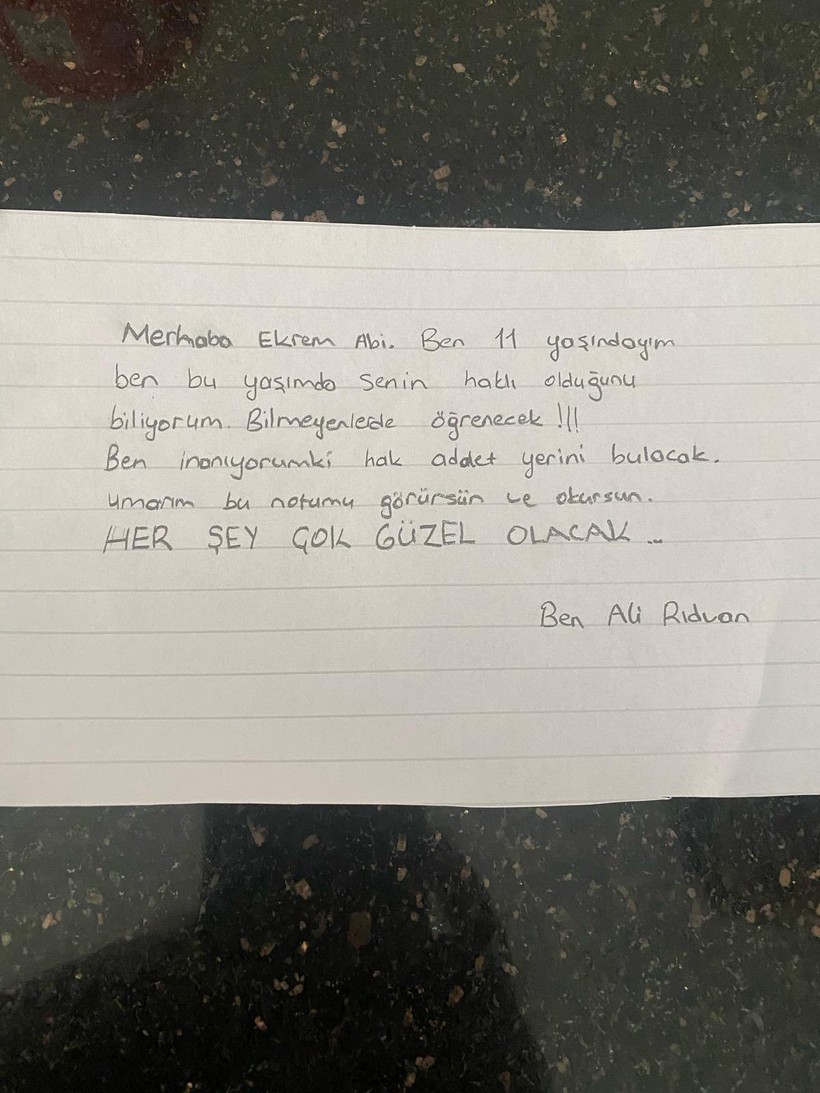 Merhaba Ekrem Abi. Ben 11 yaşındayım
ben bu yaşımda senin haklı olduğunu
biliyorum. Bilmeyenlerde öğrenecek !!!
Ben inanıyorumki hak addet yerini bulacak.
umarım bu notumu görürsün ve okursun.
HER ŞEY ÇOK GÜZEL OLACAK...
Ben Ali Rıdvan